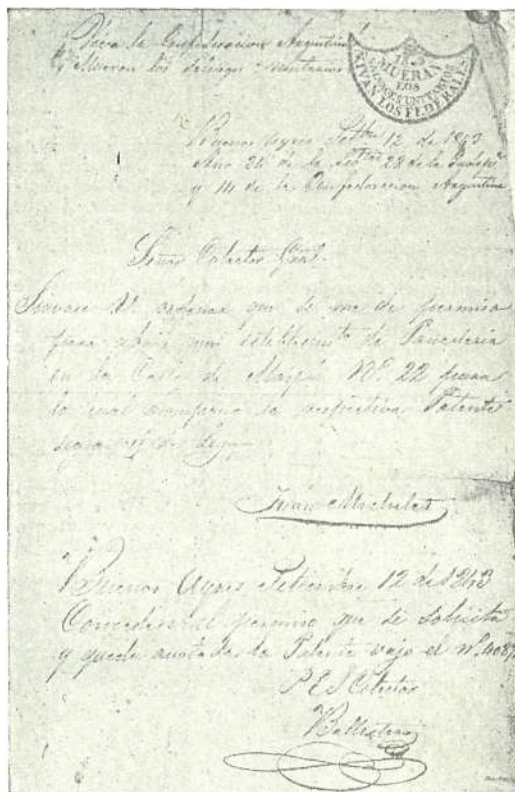 Viva la Confederacion Argentina!
Mueran los
1843
MUERAN
LOS
SALVAGES UNITARIOS
VIVAN LOS FEDERALES
Buenos Ayres 12 de 1843
Año 34 de la 28 de la
y 14 de la Confederacion Argentina
Señor Colector Gral.
Sirvase V. ordenar que se me de permiso
para abrir un de
en la Calle de Maypú Nº 22 para
lo cual acompaño la respectiva Patente
segun ley
Juan
Buenos Ayres Setiembre 12 de 1843
Concedese el permiso que se solicita
y queda anotada la Patente vajo el nº
P E S Colector